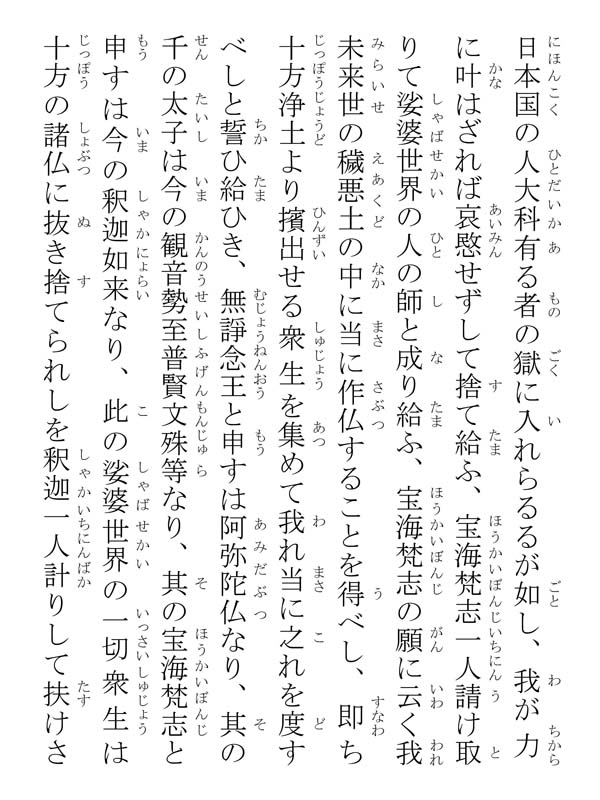 日本国の人大科有る者の獄に入れらるるが如し、我が力
に叶はざれば哀愍せずして捨て給ふ、宝海梵志一人請け取
りて娑婆世界の人の師と成り給ふ、宝海梵志の願に云く我
未来世の穢悪土の中に当に作仏することを得べし、即ち
十方浄土より擯出せる衆生を集めて我れ当に之れを度す
べしと誓ひ給ひき、無諍念王と申すは阿弥陀仏なり、其の
千の太子は今の観音勢至普賢文殊等なり、其の宝海梵志と
申すは今の釈迦如来なり、此の娑婆世界の一切衆生は
十方の諸仏に抜き捨てられしを釈迦一人計りして扶けさ